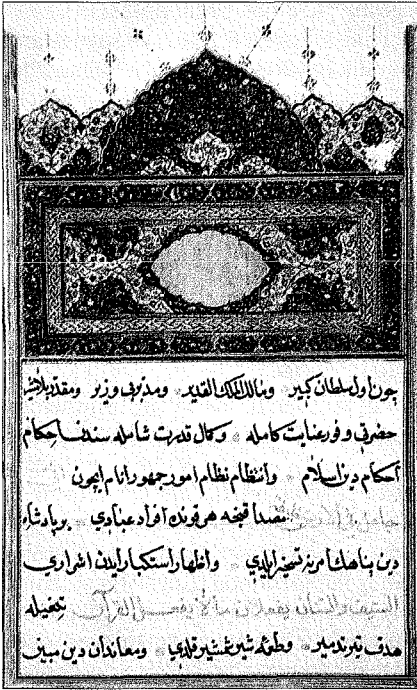 چون اول سلطان كبير ومالك الملك القدير ومدبر بى وزير ومقدر بلا مشير
حضرتى وفور عنايت كامله وكمال قدرت شامله سندن احكام
احكام دين اسلام وانتظام نظام امور جمهور انام ايچون
هر قرنده افراد عبادى بر پادشاه
دين پناهك امرينه تسخير ايلدى واظهار استكبار ايدن اشرارى
السيف والسنان يفعلان ما لا يفعل القرآن
هدف تير تدمير وطعمه شير شمشير قلدى ومعاندان دين مبين